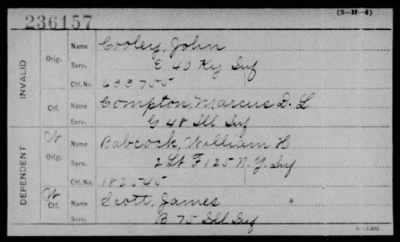 (3-H-4)
236157
INVALID
Orig.
Name Cooley, John
Serv. E 40 Ky Inf
Ctf. No. 633755
Ctf.
Name Compton, Marcus D. L
Serv. G 48 Ill Inf
DEPENDENT
W
Orig.
Name Babcock, William H
Serv. 2 Lt F 125 N.Y. Inf
Ctf. No. 182545
W
Ctf.
Name Scott, James
Serv. B 75 Ill Inf